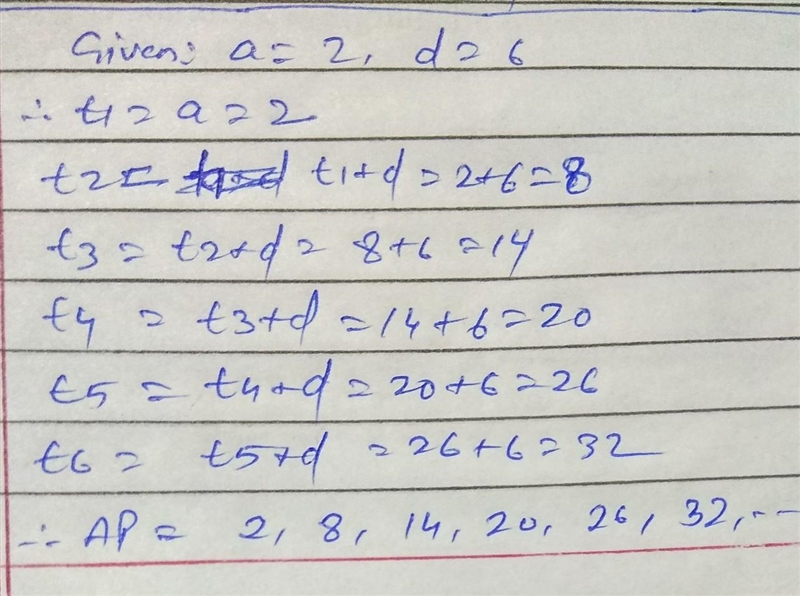 Given: a = 2, d = 6
∴ t1 = a = 2
t2 = t1+d = 2+6 = 8
t3 = t2+d = 8+6 = 14
t4 = t3+d = 14+6 = 20
t5 = t4+d = 20+6 = 26
t6 = t5+d = 26+6 = 32
∴ AP = 2, 8, 14, 20, 26, 32, --